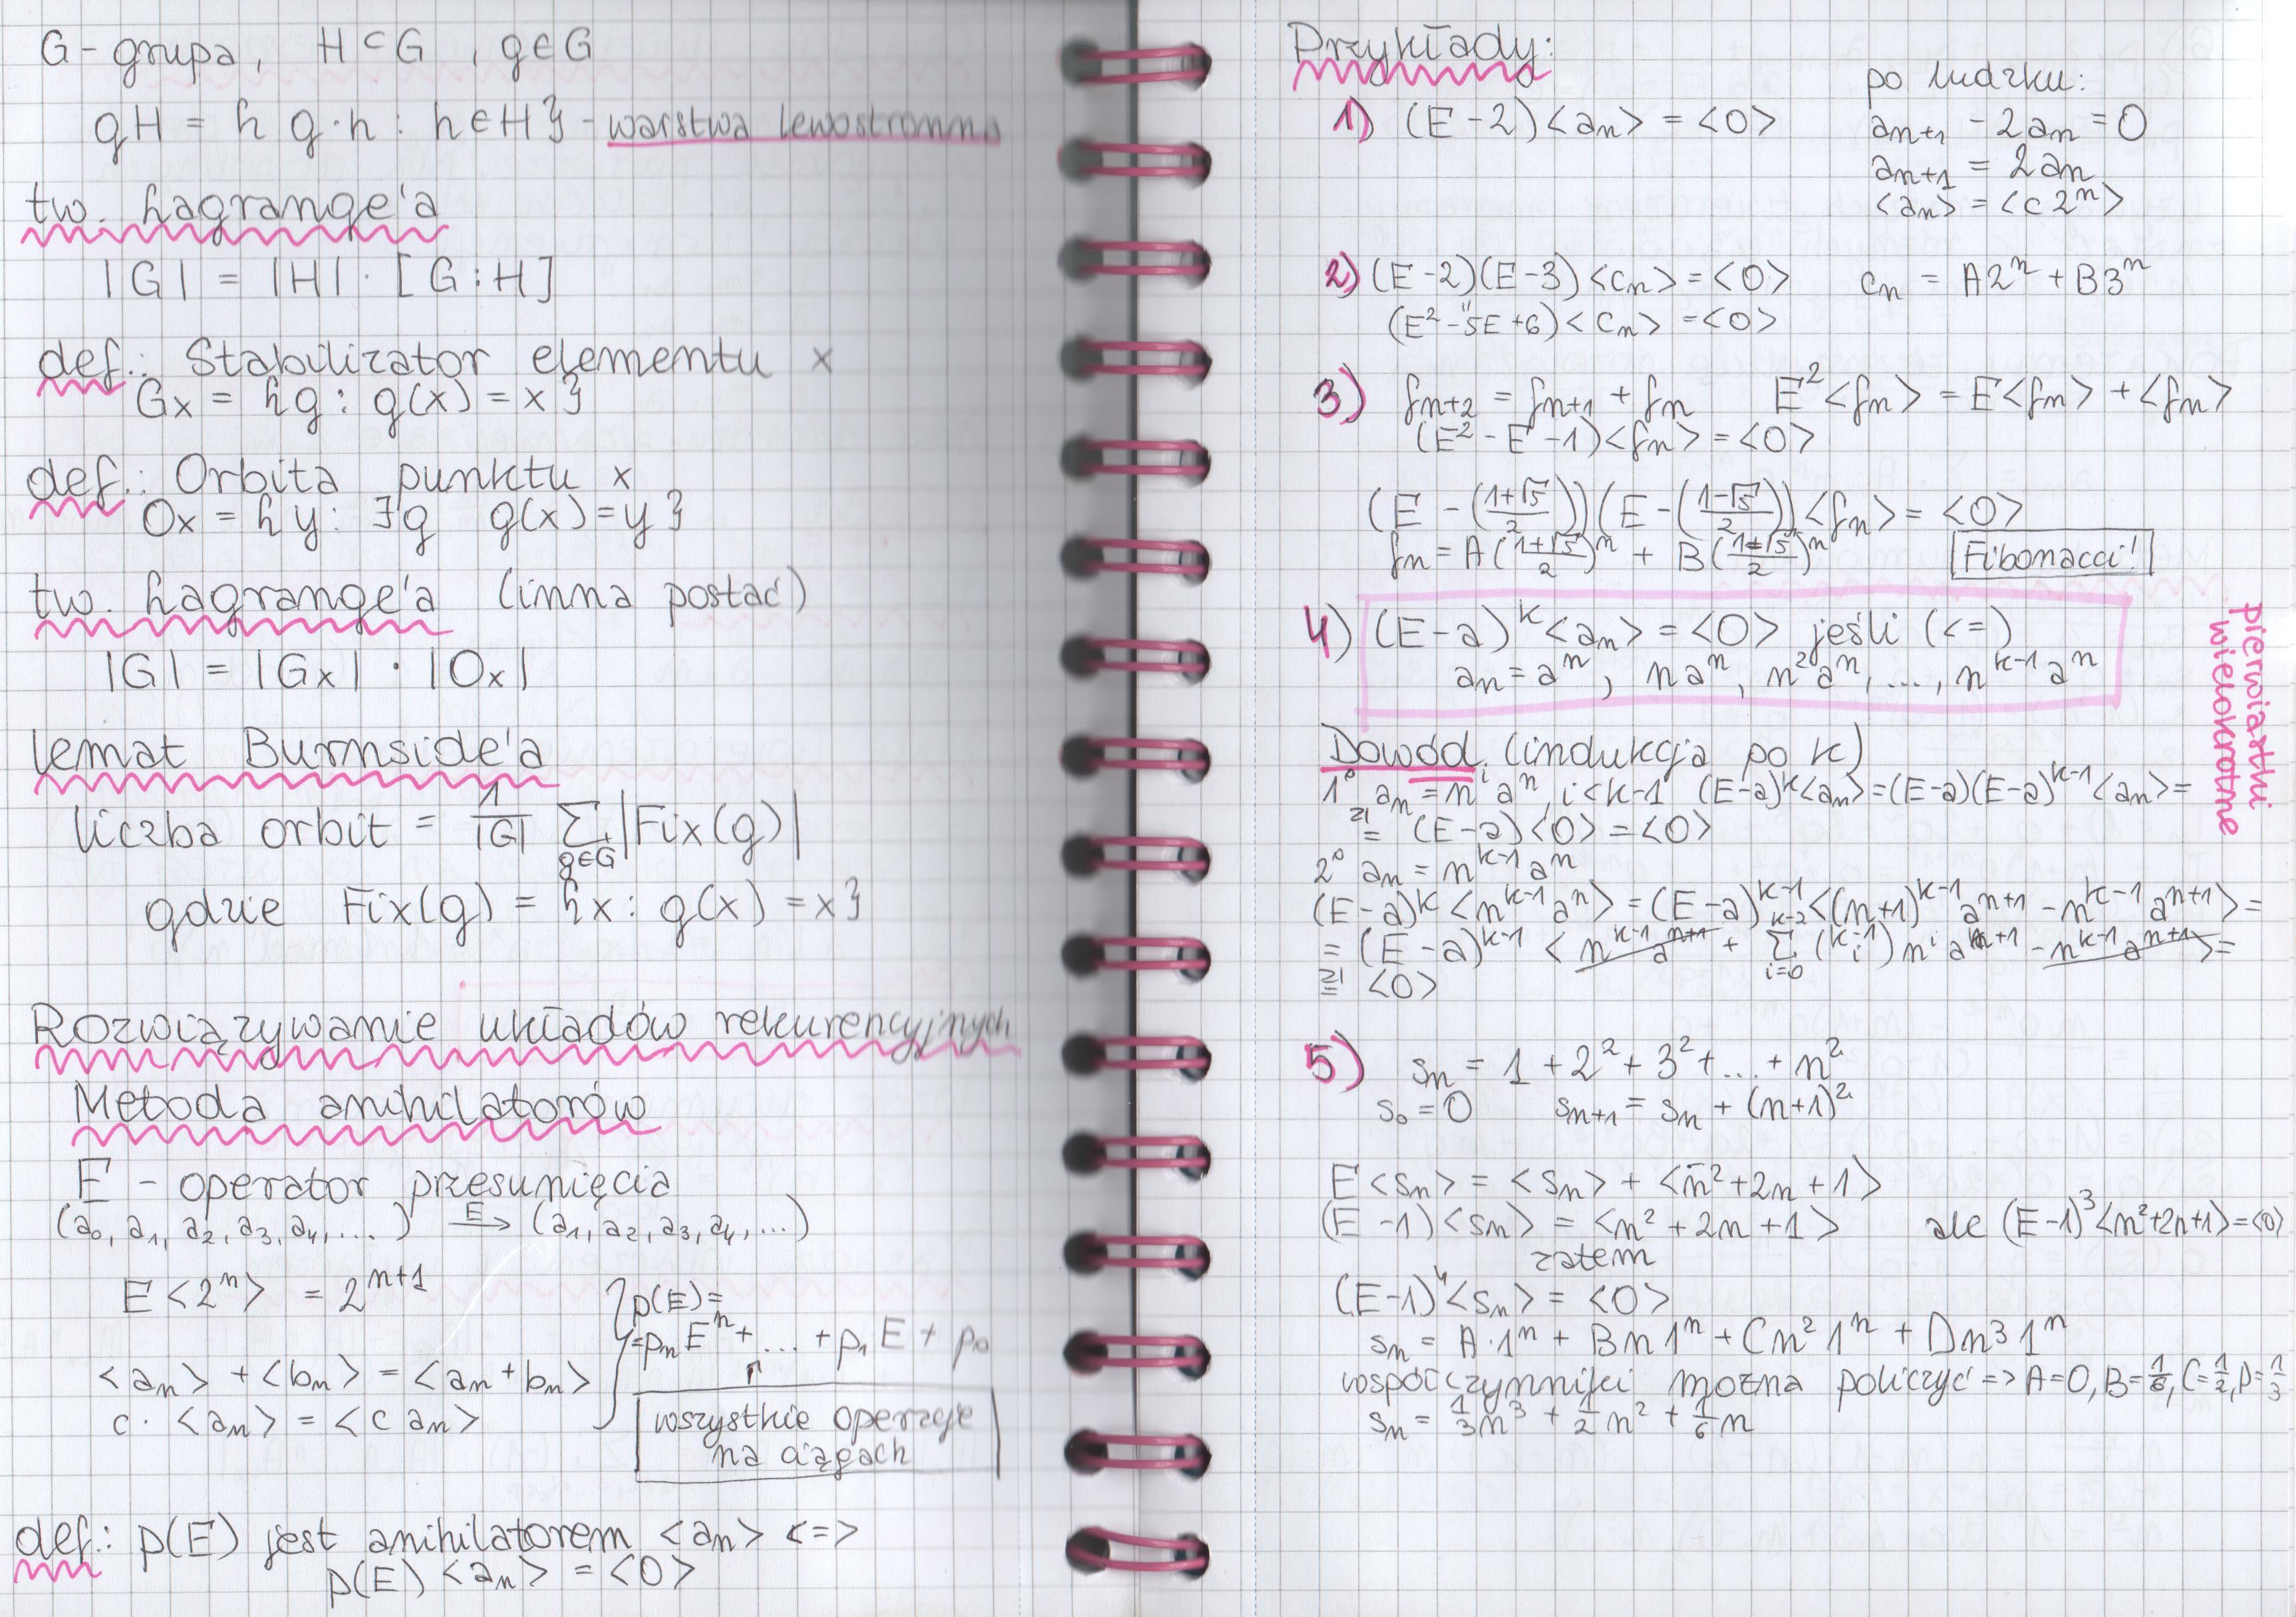 G - grupa, H ⊂ G, g ∈ G
gH = { g·h : h ∈ H } - warstwa lewostronna
tw. Lagrange'a
|G| = |H| · [G:H]
def.: Stabilizator elementu x
Gx = {g : g(x) = x}
def.: Orbita punktu x
Ox = {y : ∃g g(x) = y}
tw. Lagrange'a (inna postać)
|G| = |Gx| · |Ox|
lemat Burnside'a
liczba orbit = 1/|G| ∑_{g∈G} |Fix(g)|
gdzie Fix(g) = {x : g(x) = x}
Rozwiązywanie układów rekurencyjnych
Metoda anihilatorów
E - operator przesunięcia
(a₀, a₁, a₂, a₃, a₄, ...) →^E (a₁, a₂, a₃, a₄, ...)
E<2ⁿ> = 2ⁿ⁺¹
<aₙ> + <bₙ> = <aₙ + bₙ>
c · <aₙ> = <c aₙ>
p(E) =
= pₙEⁿ + ... + p₁E + p₀
wszystkie operacje
na ciągach
def.: p(E) jest anihilatorem <aₙ> <=>
p(E) <aₙ> = <0>
Przykłady:
1) (E - 2)<aₙ> = <0>
po ludzku:
aₙ₊₁ - 2aₙ = 0
aₙ₊₁ = 2aₙ
<aₙ> = <c 2ⁿ>
2) (E - 2)(E - 3)<cₙ> = <0> cₙ = A2ⁿ + B3ⁿ
"
(E² - 5E + 6)<cₙ> = <0>
3) fₙ₊₂ = fₙ₊₁ + fₙ E²<fₙ> = E<fₙ> + <fₙ>
(E² - E - 1)<fₙ> = <0>
(E - ((1+√5)/2))(E - ((1-√5)/2))<fₙ> = <0>
fₙ = A((1+√5)/2)ⁿ + B((1-√5)/2)ⁿ Fibonacci!
4) (E - a)ᵏ<aₙ> = <0> jeśli (<=)
aₙ = aⁿ, naⁿ, n²aⁿ, ..., nᵏ⁻¹aⁿ
pierwiastki
wielokrotne
Dowód. (indukcja po k)
1° aₙ = nⁱaⁿ, i < k-1 (E-a)ᵏ<aₙ> = (E-a)(E-a)ᵏ⁻¹<aₙ> =
=^{zi} (E-a)<0> = <0>
2° aₙ = nᵏ⁻¹aⁿ
(E-a)ᵏ<nᵏ⁻¹aⁿ> = (E-a)ᵏ⁻¹<(n+1)ᵏ⁻¹aⁿ⁺¹ - nᵏ⁻¹aⁿ⁺¹> =
= (E-a)ᵏ⁻¹ <nᵏ⁻¹aⁿ⁺¹ + ∑_{i=0}^{k-2} (k-1 i) nⁱaⁿ⁺¹ - nᵏ⁻¹aⁿ⁺¹> =
=^{zi} <0>
5) sₙ = 1 + 2² + 3² + ... + n²
s₀ = 0 sₙ₊₁ = sₙ + (n+1)²
E<sₙ> = <sₙ> + <n² + 2n + 1>
(E - 1)<sₙ> = <n² + 2n + 1> ale (E-1)³<n²+2n+1> = <0>
zatem
(E-1)⁴<sₙ> = <0>
sₙ = A·1ⁿ + Bn1ⁿ + Cn²1ⁿ + Dn³1ⁿ
współczynniki można policzyć => A=0, B=1/6, C=1/2, D=1/3
sₙ = 1/3n³ + 1/2n² + 1/6n